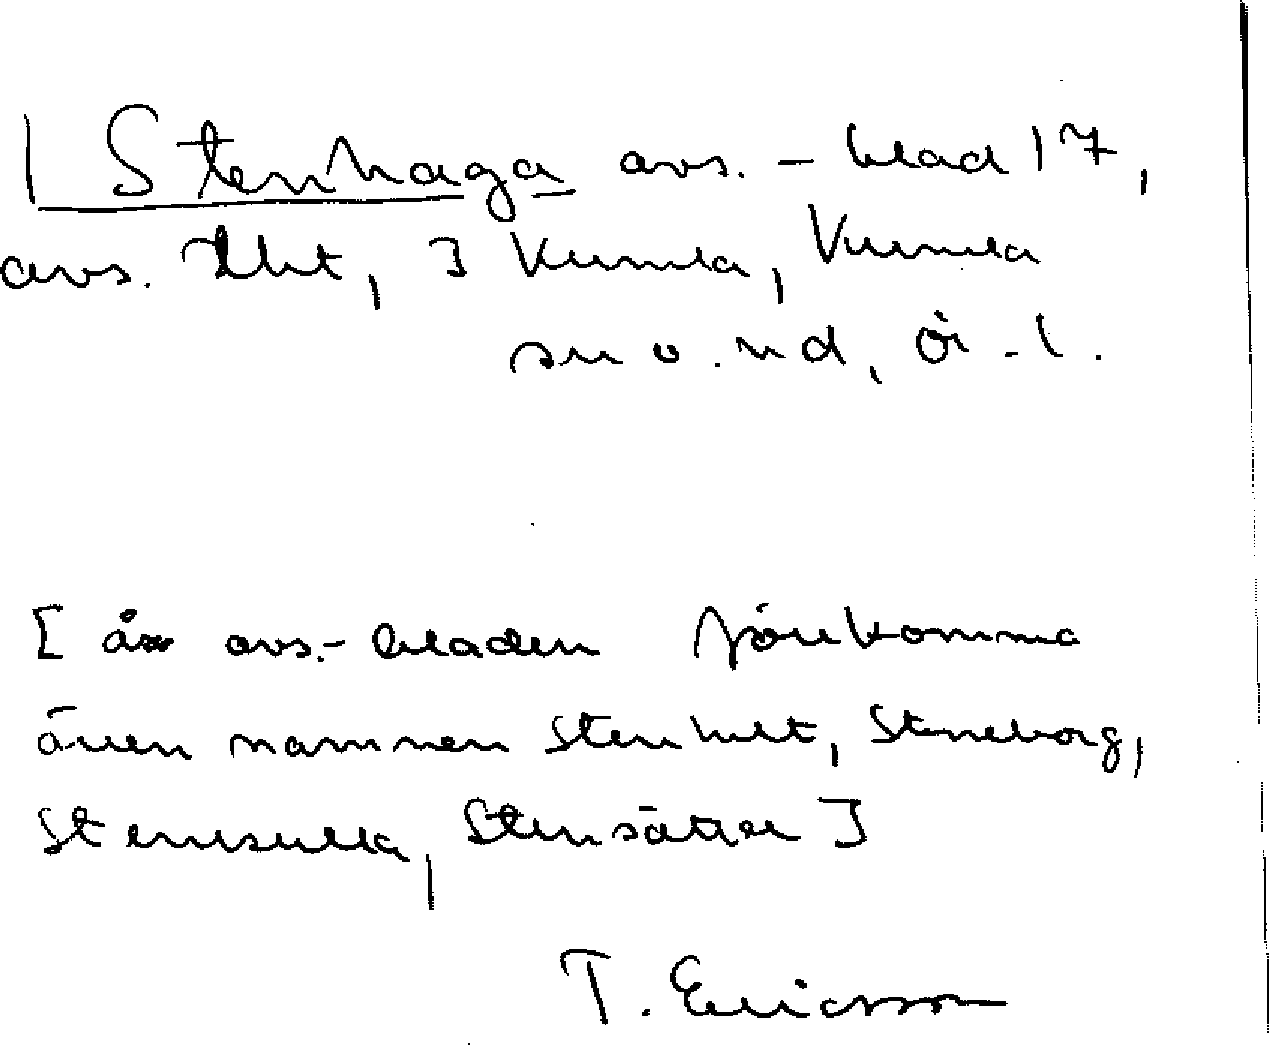 Stenhaga avs. - blad 17,
avs. lht, 3 Kumla, Kumla
sn o. hd, Ör. l.
[ åt avs.-bladen förekomma
även namnen Stenhult, Steneborg,
Stenkulla, Stensätter ]
T. Ericsson